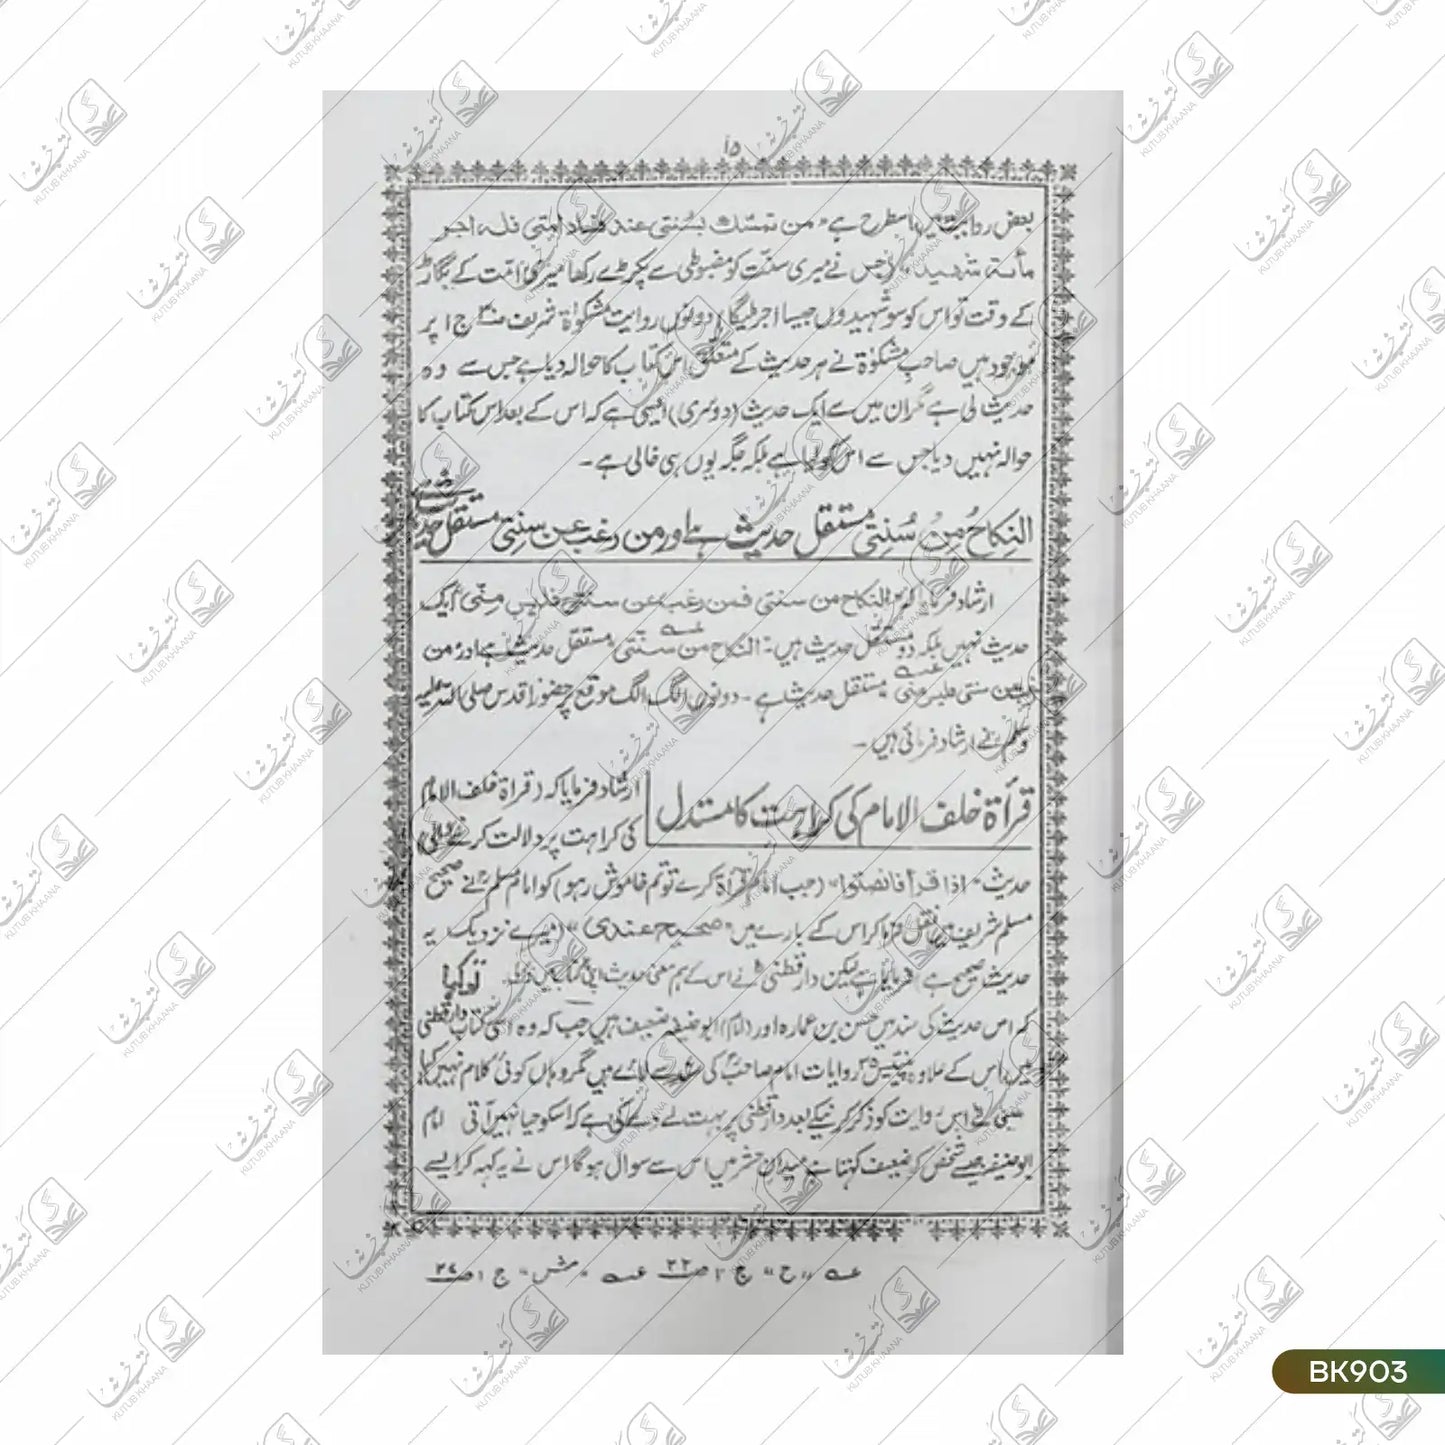 ۱۵
بعض روایت میں اسطرح ہے "من تمسّك بسُنتی عند فساد امتی فله اجر
مأئة شهید" (جس نے میری سنت کو مضبوطی سے پکڑے رکھا میری امّت کے بگاڑ
کے وقت تو اس کو سو شہیدوں جیسا اجر ملیگا) دونوں روایت مشکوٰۃ شریف ص۳۰ ج ۱ پر
موجود ہیں صاحبِ مشکوٰۃ نے ہر حدیث کے متعلق اس کتاب کا حوالہ دیا ہے جس سے وہ
حدیث لی ہے مگر ان میں سے ایک حدیث (دوسری) ایسی ہے کہ اس کے بعد اس کتاب کا
حوالہ نہیں دیا جس سے اس کو لیا ہے بلکہ جگہ یوں ہی خالی ہے۔
النِکاحُ مِنْ سُنتِی مستقل حدیث ہے اور من رغب عن سنتِی مستقل حدیث ہے
ارشاد فرمایا کہ النکاح من سنتی فمن رغب عن سنتی فلیس مِنّی ایک
حدیث نہیں بلکہ دو مستقل حدیث ہیں: النکاح من سنتی مستقل حدیث ہے اور من
رغب عن سنتی فلیس منّی مستقل حدیث ہے۔ دونوں الگ الگ موقع پر حضورِ اقدس صلی اللہ علیہ
وسلم نے ارشاد فرمائی ہیں۔
قرأۃ خلف الامام کی کراہت کا مستدل
ارشاد فرمایا کہ (قراۃ خلف الامام
کی کراہت پر دلالت کرنے والی)
حدیث "اذا قرأ فانصتوا" (جب امام قرأۃ کرے تو تم خاموش رہو) کو امام مسلمؒ نے صحیح
مسلم شریف میں نقل فرما کر اس کے بارے میں "صحیح عندی" (میرے نزدیک یہ
حدیث صحیح ہے) فرمایا ہے لیکن دارقطنی نے اس کے ہم معنی حدیث اپنی کتاب میں ذکر کی تو کہا
کہ اس حدیث کی سند میں حسن بن عمارہ اور (امام) ابو حنیفہ ضعیف ہیں جب کہ وہ اسی کتاب دارقطنی
میں اس کے علاوہ پینتیس ۳۵ روایات امام صاحبؒ کی سند سے لائے ہیں مگر وہاں کوئی کلام نہیں کیا
عینی نے اس روایت کو ذکر کرنیکے بعد دارقطنی پر بہت لے دے کی ہے کہ اسکو حیا نہیں آتی امام
ابو حنیفہ جیسے شخص کو ضعیف کہتا ہے میدانِ حشر میں اس سے سوال ہوگا اس نے یہ کہہ کر ایسے
عـہ "ح" ج ۱ ص۳۲ عـہ "مش" ج ۱ ص۲۷
BK903
کتب خانہ
KUTUB KHAANA